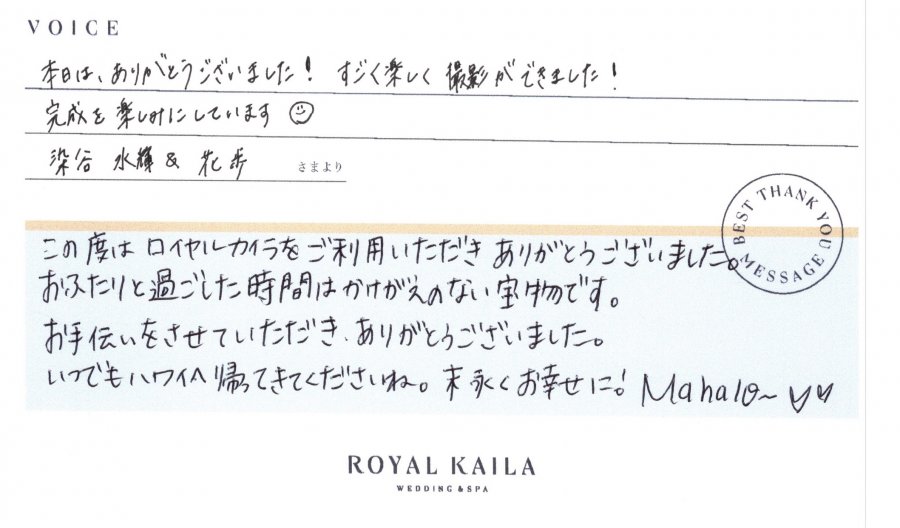 VOICE
本日は、ありがとうございました！ すごく楽しく 撮影ができました！
完成を楽しみにしています
染谷 水輝 & 花歩 さまより
BEST THANK YOU MESSAGE
この度は ロイヤルカイラをご利用いただき ありがとうございました。
おふたりと過ごした時間はかけがえのない宝物です。
お手伝いをさせていただき、ありがとうございました。
いつでもハワイへ帰ってきてくださいね。末永くお幸せに! Mahalo~ ♡♡
ROYAL KAILA
WEDDING & SPA